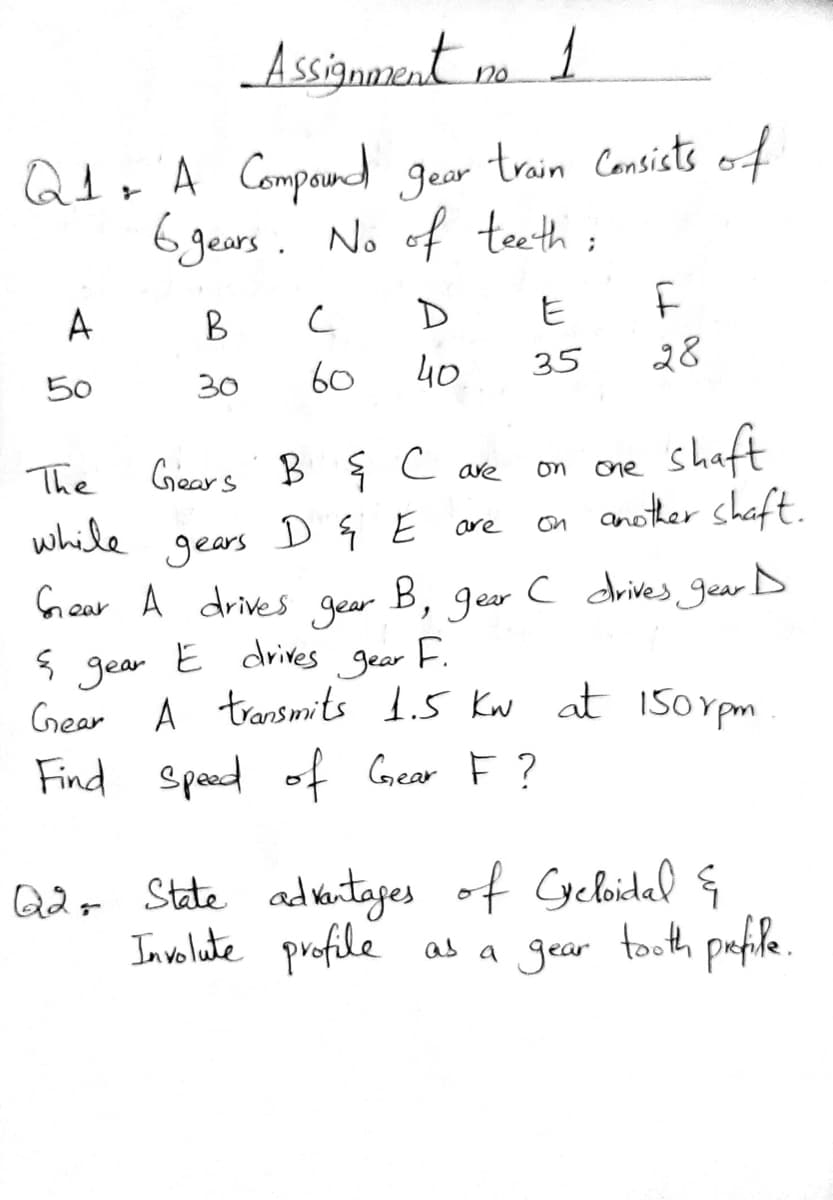 Assignment no 1
Q1:- A Compound gear train Consists of
6 gears. No of teeth :
A B C D E F
50 30 60 40 35 28
The Gears B & C are on one shaft
while gears D & E are on another shaft.
Gear A drives gear B, gear C drives gear D
& gear E drives gear F.
Gear A transmits 1.5 Kw at 150 rpm.
Find Speed of Gear F ?
Q2:- State advantages of Cycloidal &
Involute profile as a gear tooth profile.